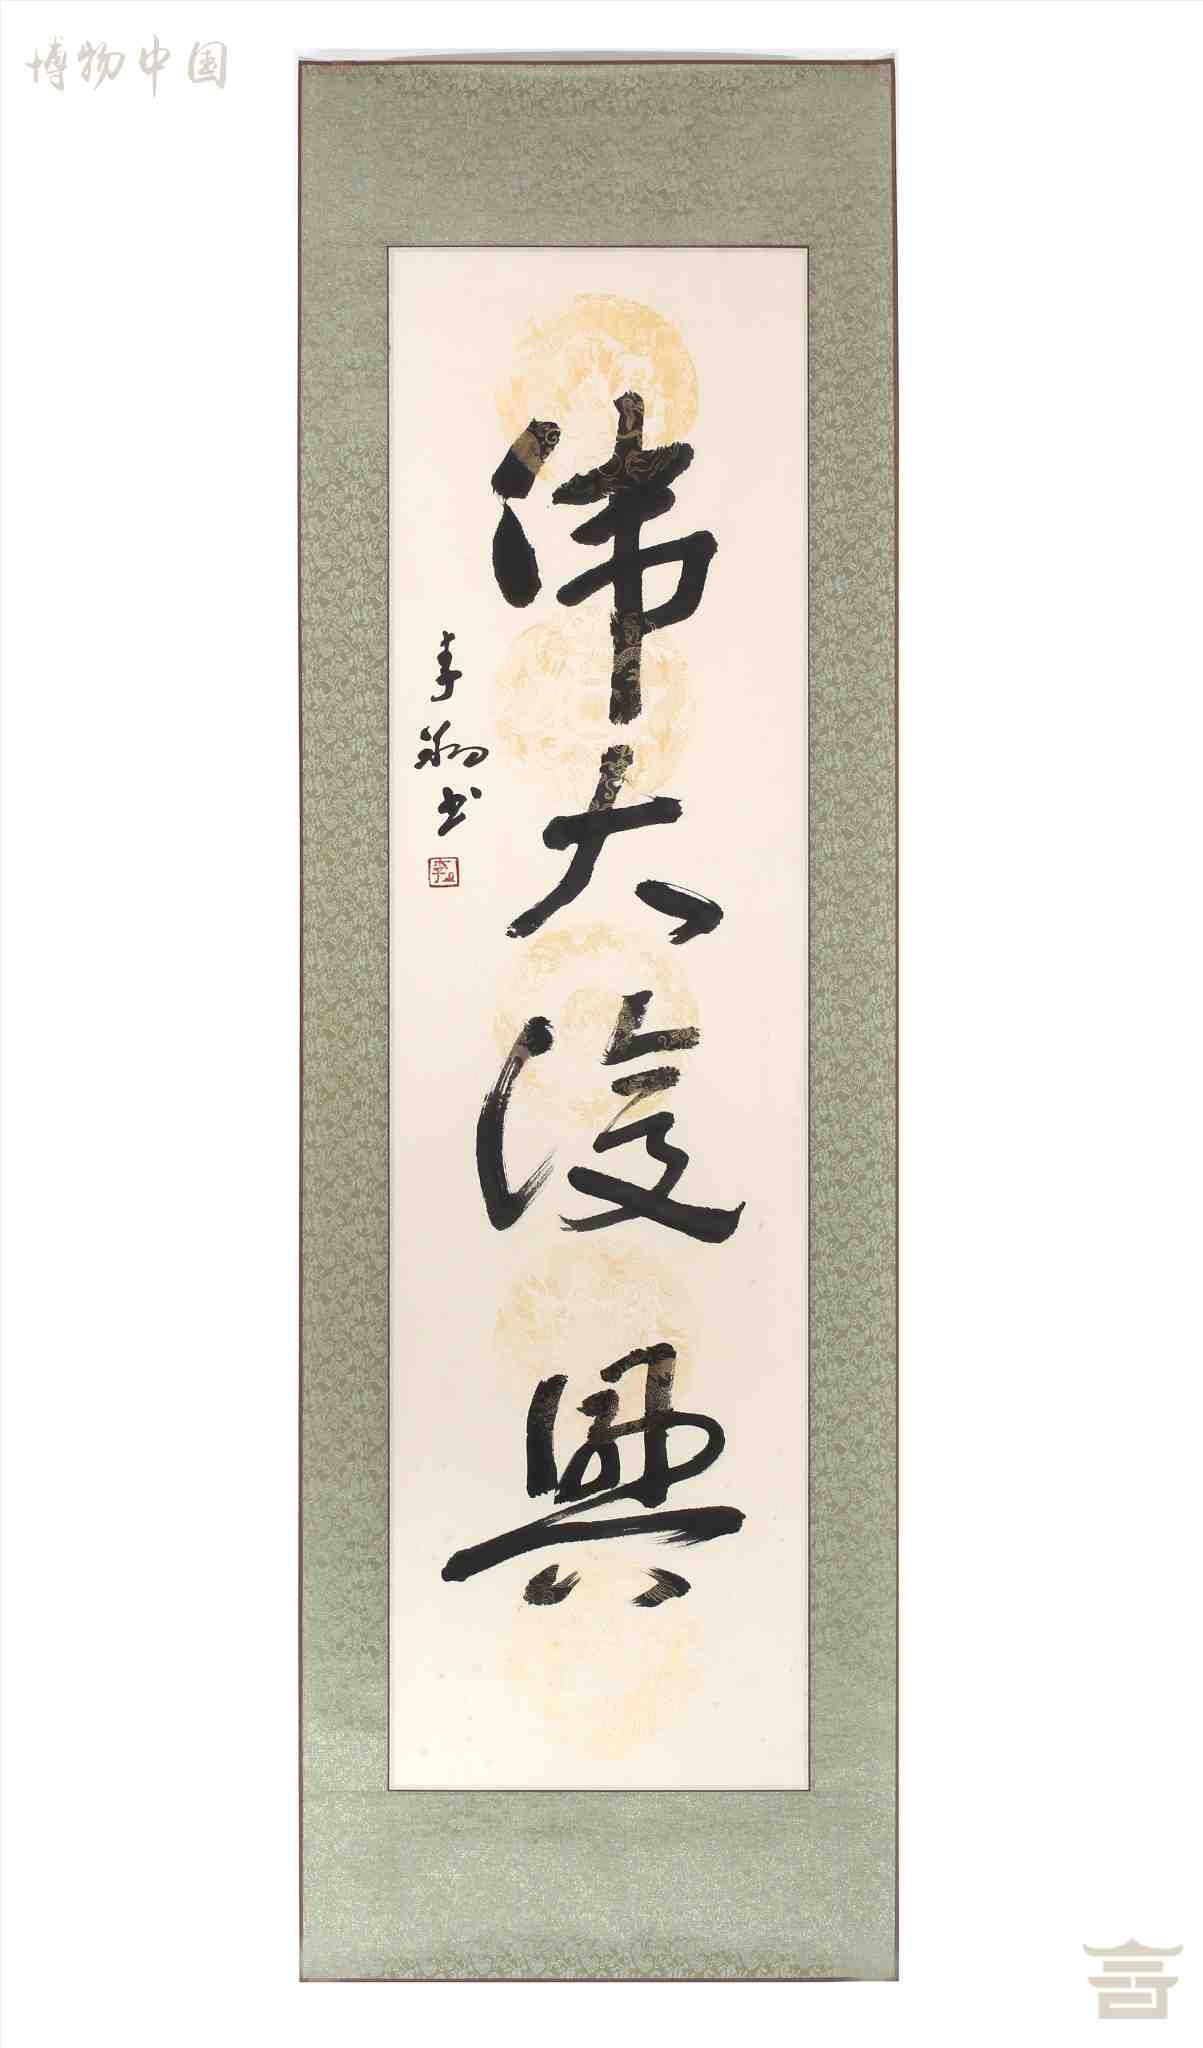 博物中国
伟大復興
李翔书